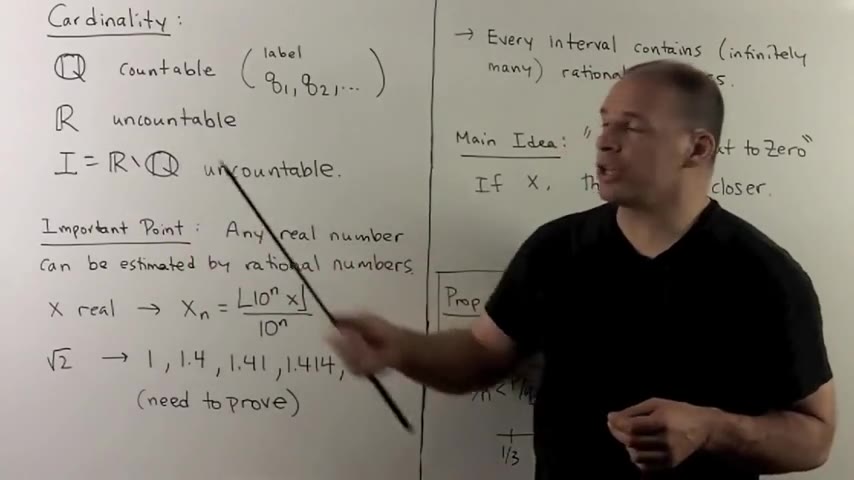 Cardinality:
ℚ countable (label q₁, q₂, ...)
ℝ uncountable
I = ℝ\ℚ uncountable.
Important Point: Any real number
can be estimated by rational numbers.
X real → Xₙ = ⌊10ⁿ x⌋ / 10ⁿ
√2 → 1, 1.4, 1.41, 1.414,
(need to prove)
→ Every interval contains (infinitely
many)
Main Idea: " to Zero"
If X, closer.
Prop
1/3